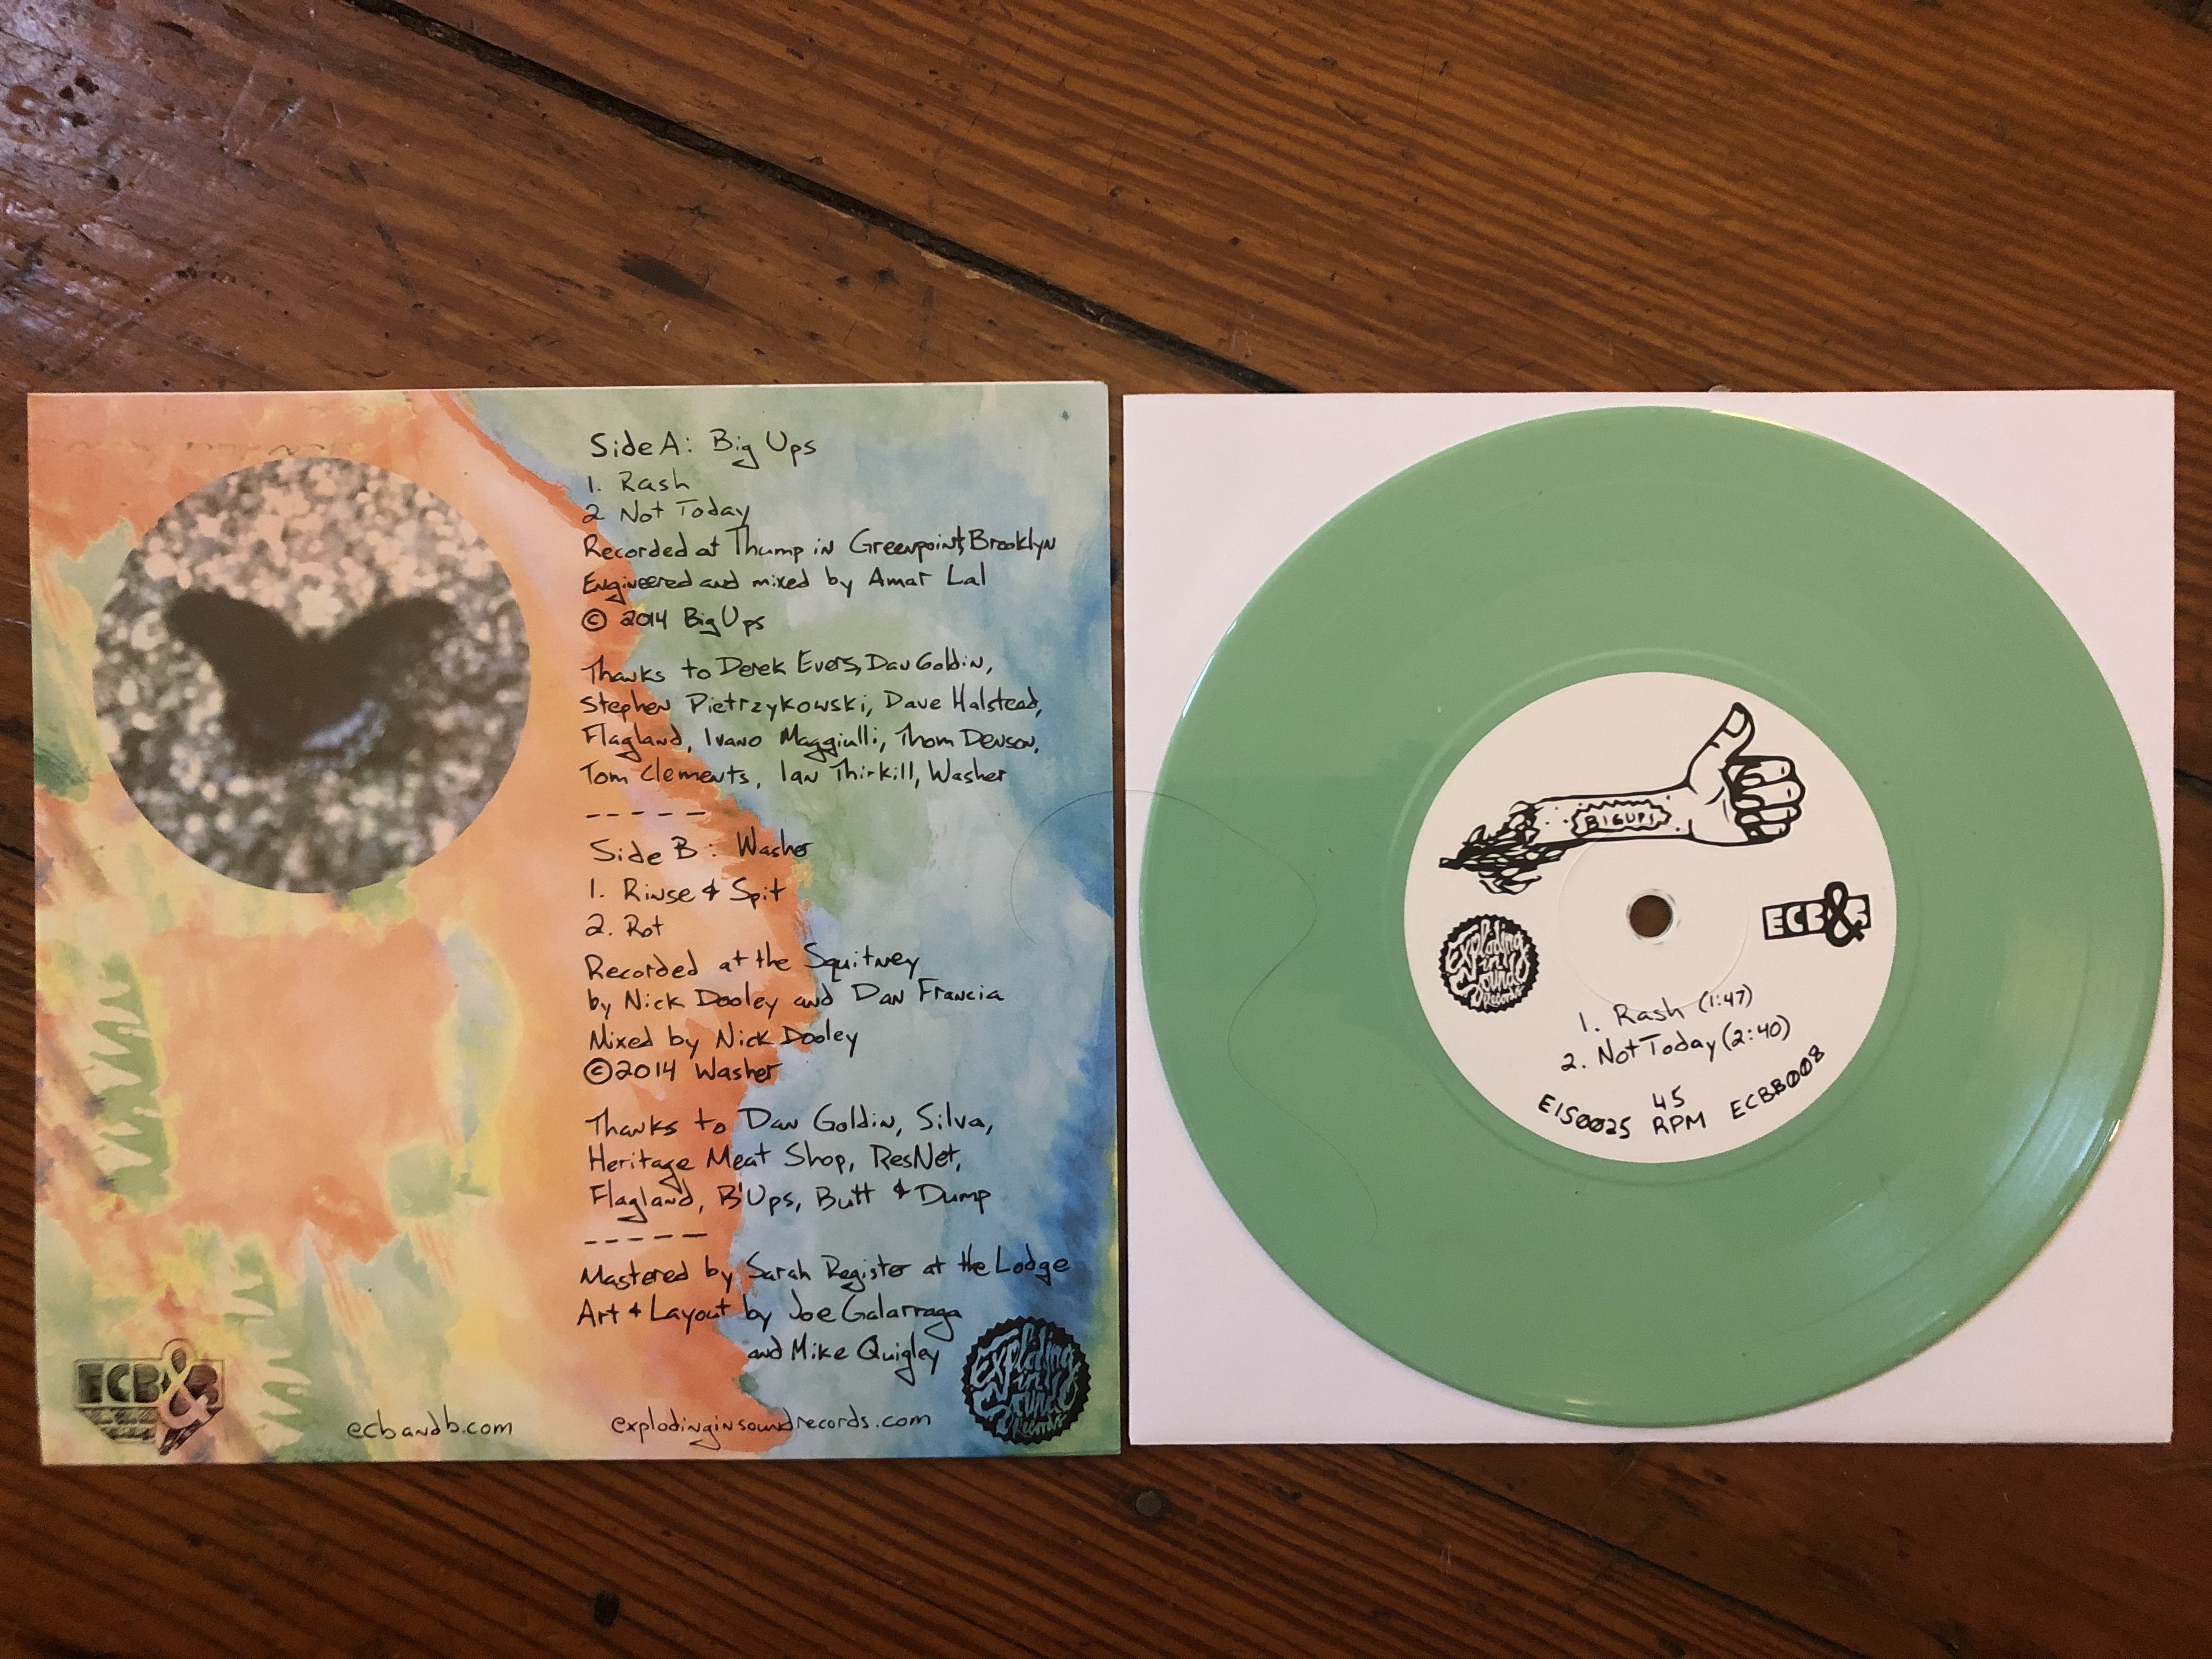 Side A: Big Ups
1. Rash
2 Not Today
Recorded at Thump in Greenpoint, Brooklyn
Engineered and mixed by Amar Lal
© 2014 Big Ups
Thanks to Derek Evers, Dan Goldin,
Stephen Pietrzykowski, Dave Halstead,
Flagland, Ivano Maggiulli, Thom Denson,
Tom Clements, Ian Thirkill, Washer
-----
Side B: Washer
1. Rinse & Spit
2. Rot
Recorded at the Squitney
by Nick Dooley and Dan Francia
Mixed by Nick Dooley
©2014 Washer
Thanks to Dan Goldin, Silva,
Heritage Meat Shop, ResNet,
Flagland, B'Ups, Butt & Dump
-----
Mastered by Sarah Register at the Lodge
Art & Layout by Joe Galarraga
and Mike Quigley
ECB&B
ecbandb.com
explodinginsoundrecords.com
Exploding
in
Sound
Records
BIG UPS
ECB&B
Exploding
in
Sound
Records
1. Rash (1:47)
2. Not Today (2:40)
EIS0025 45 RPM ECBB008